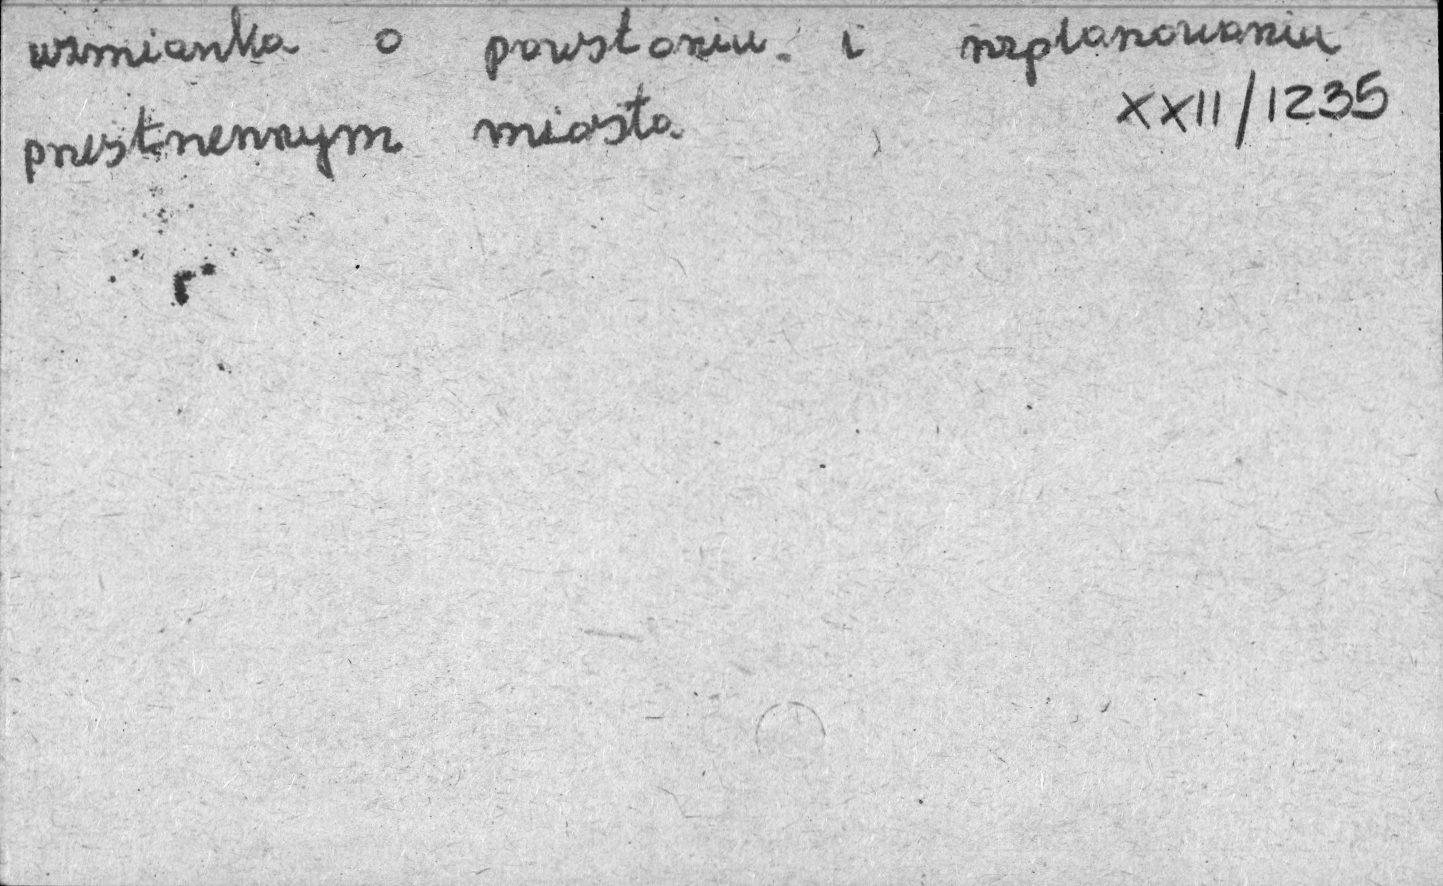 wzmianka o powstaniu i rozplanowaniu
przestrzennym miasta
XXII/1235